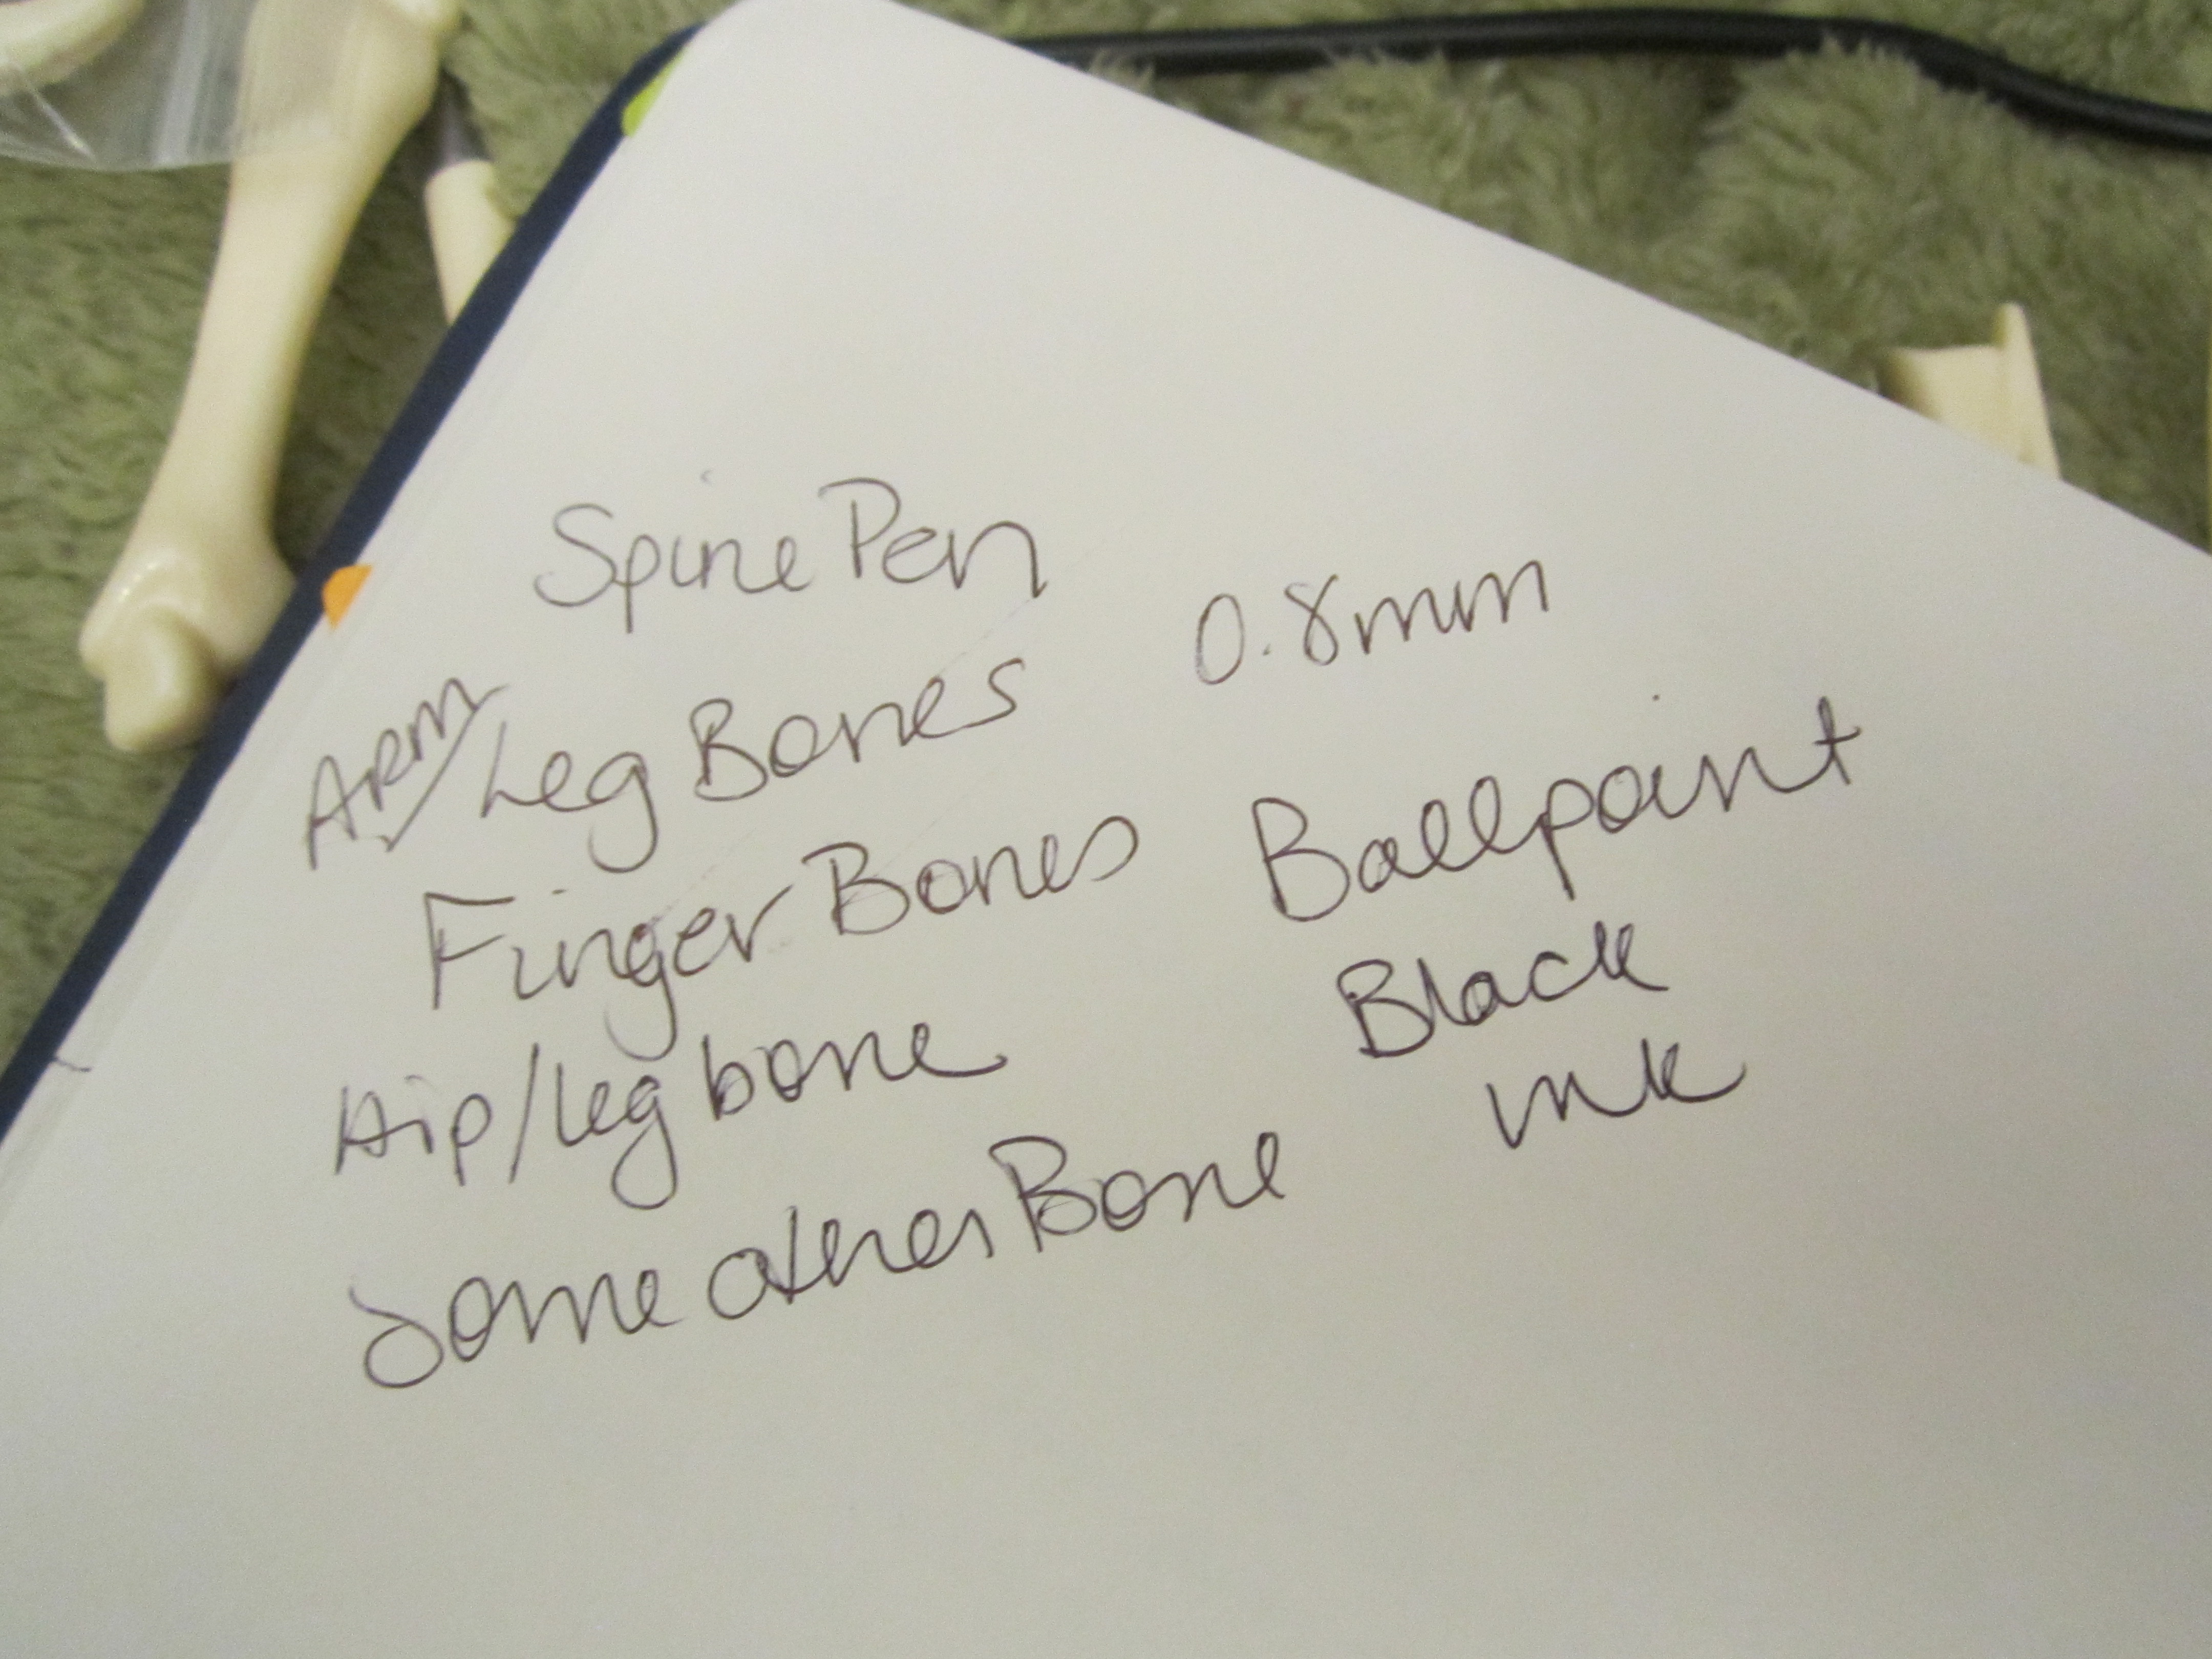 Spine Pen
ARM/Leg Bones
Finger Bones
Hip/leg bone
Some other Bone
0.8mm
Ballpoint
Black
ink